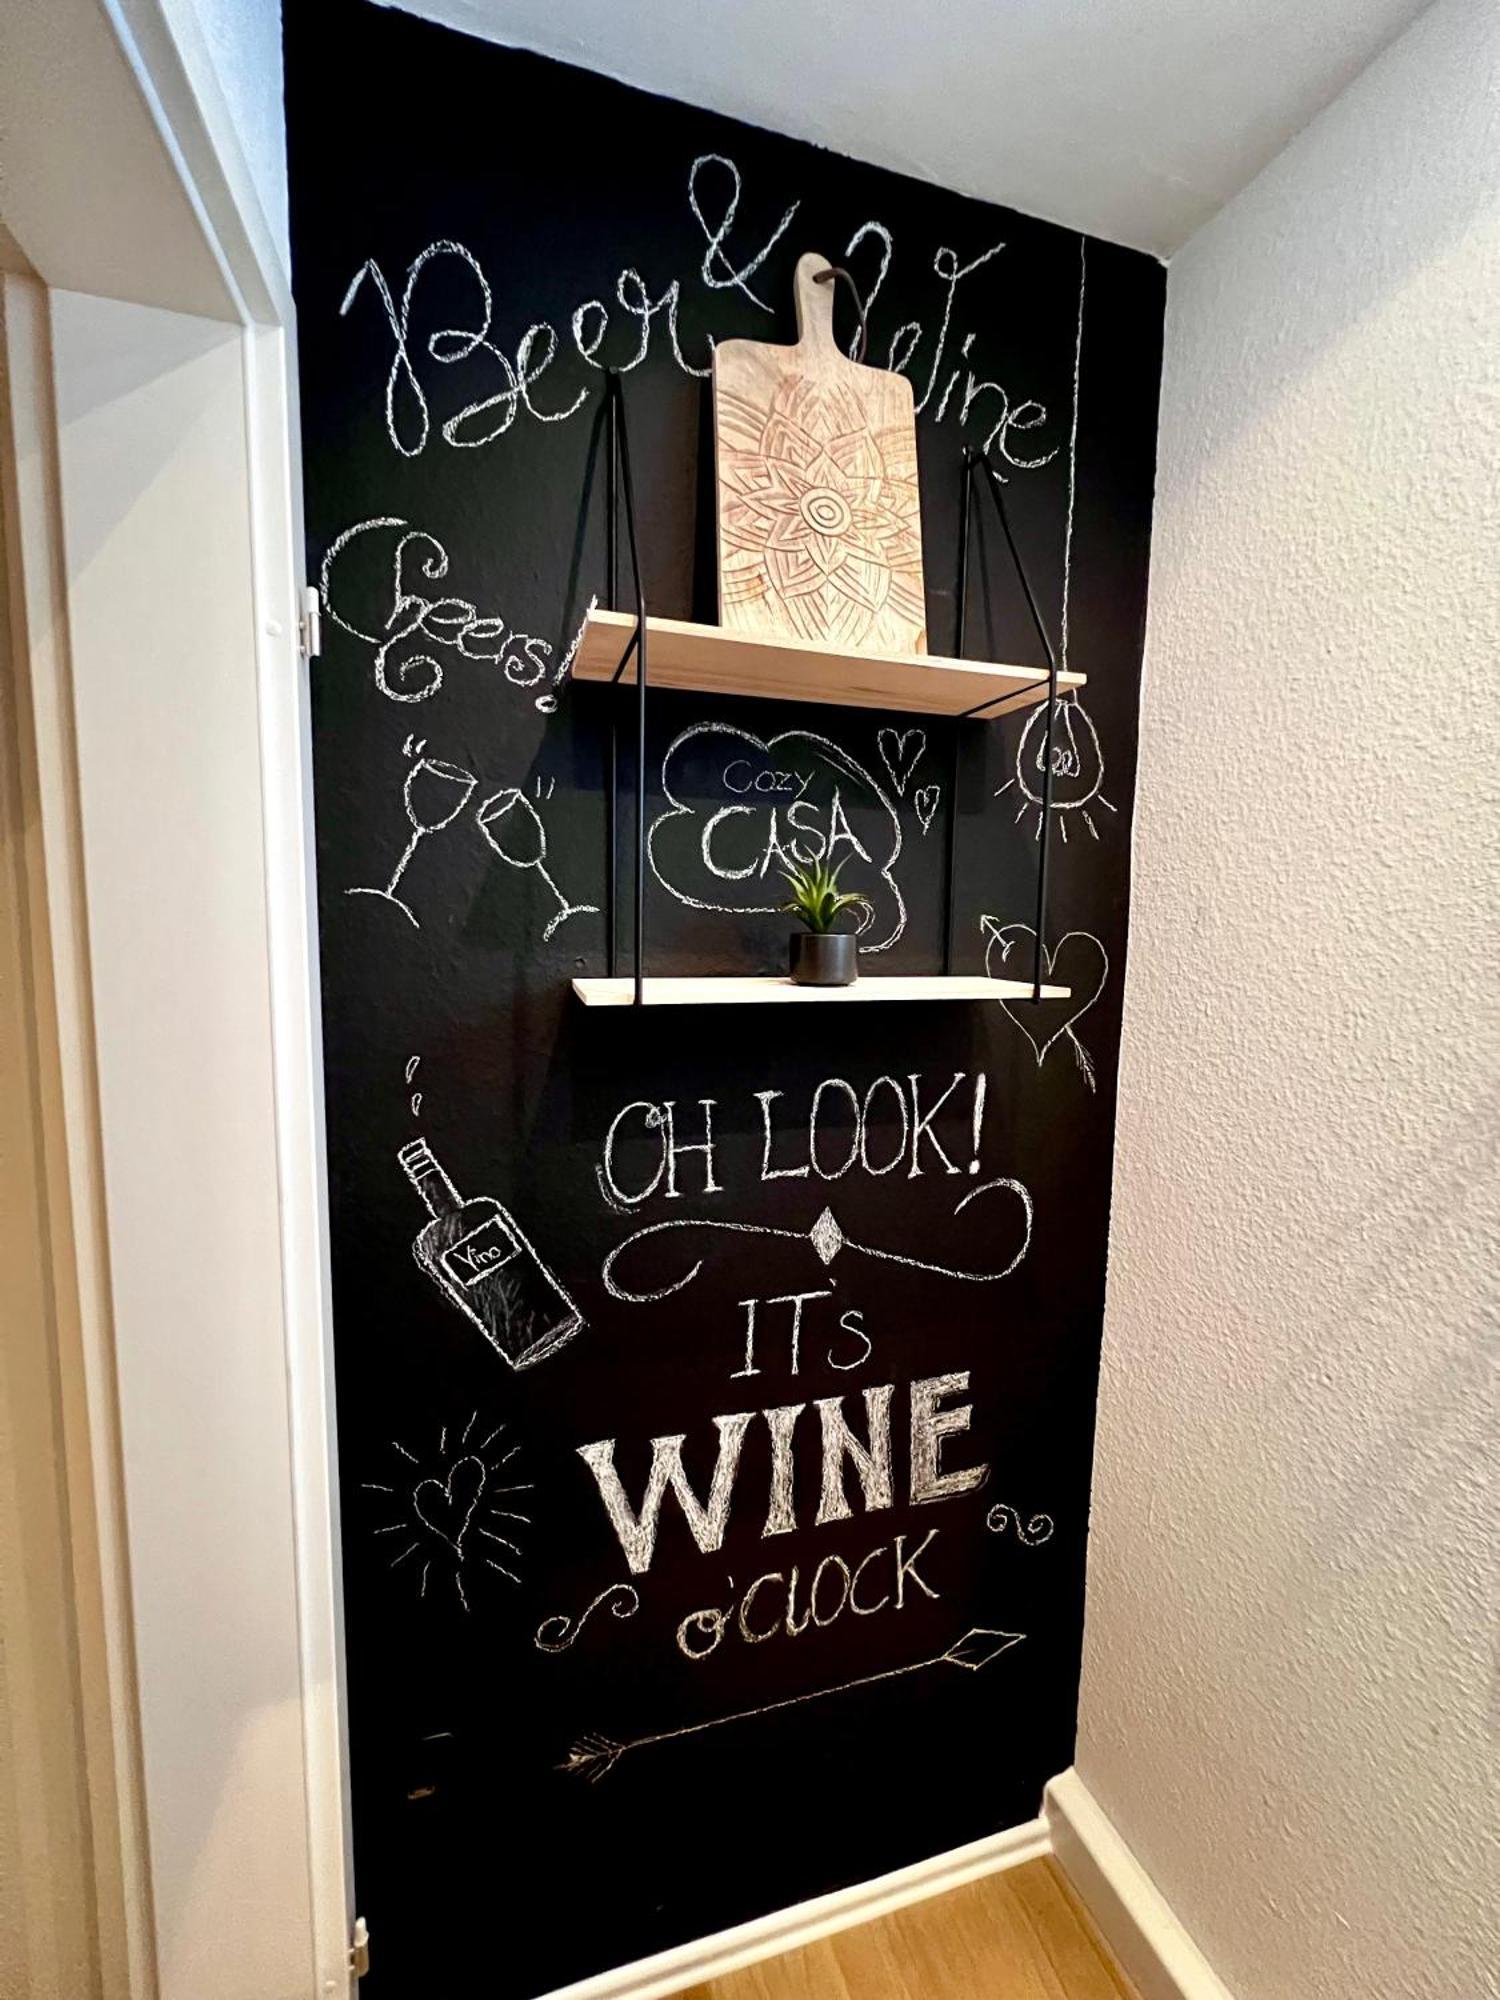 Beer & Wine
Cheers!
Cozy
CASA
OH LOOK!
Vino
IT's
WINE
o'CLOCK